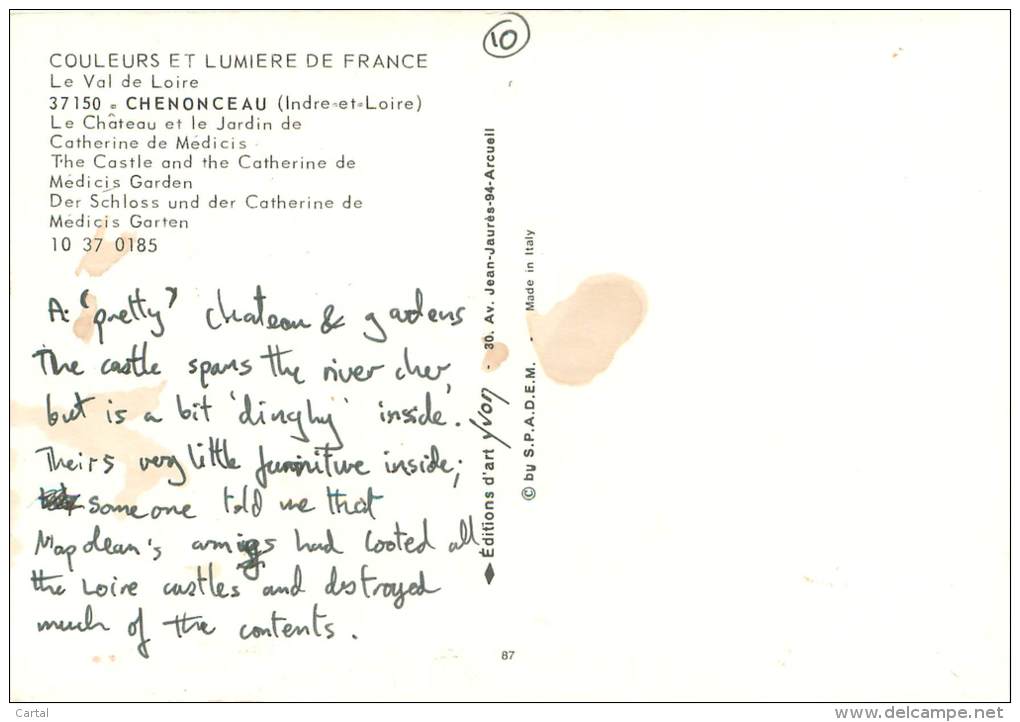 10
COULEURS ET LUMIERE DE FRANCE
Le Val de Loire
37150 - CHENONCEAU (Indre-et-Loire)
Le Château et le Jardin de
Catherine de Médicis
The Castle and the Catherine de
Médicis Garden
Der Schloss und der Catherine de
Médicis Garten
10 37 0185
A: "pretty" chateau & gardens
The castle spans the river cher,
but is a bit 'dinghy' inside.
Theirs very little furniture inside;
someone told me that
Napolean's armies had looted all
the Loire castles and destroyed
much of the contents.
◆ Éditions d'art yvon - 30. Av. Jean-Jaurès-94-Arcueil
© by S.P.A.D.E.M. - Made in Italy
87
Cartal
www.delcampe.net